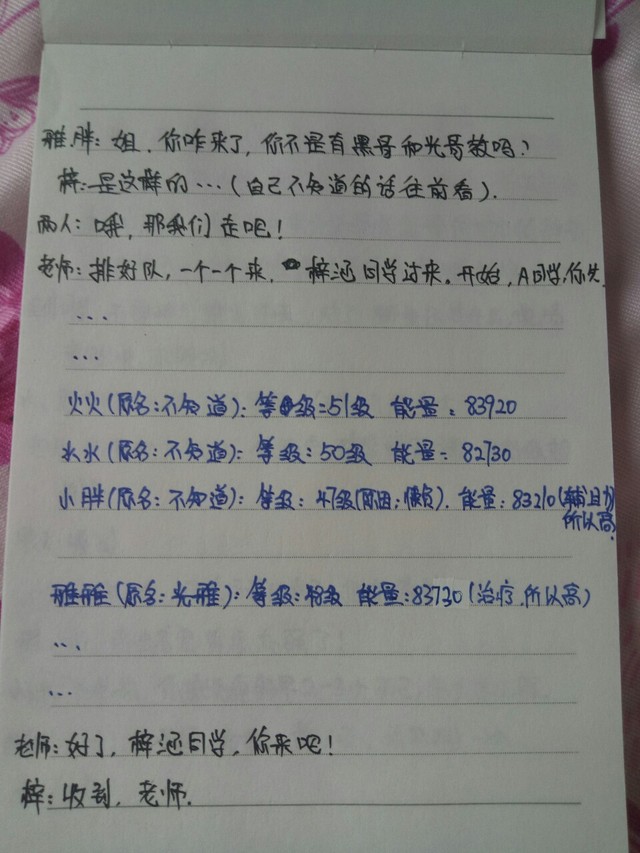 雅.胖：姐，你咋来了，你不是有黑哥和光哥教吗？
梓：是这样的…（自己不知道的话往前看）.
两人：哦，那我们走吧！
老师：排好队，一个一个来. 梓涵同学过来。开始，A同学你先.
...
...
火火（原名：不知道）：等级：51级 能量：83920
水水（原名：不知道）：等级：50级 能量：82730
小胖（原名：不知道）：等级：47级（原因：懒负）. 能量：83210（辅助
所以高.
雅雅（原名：光雅）：等级：48级 能量：83730（治疗.所以高）
...
...
老师：好了，梓涵同学，你来吧！
梓：收到，老师.